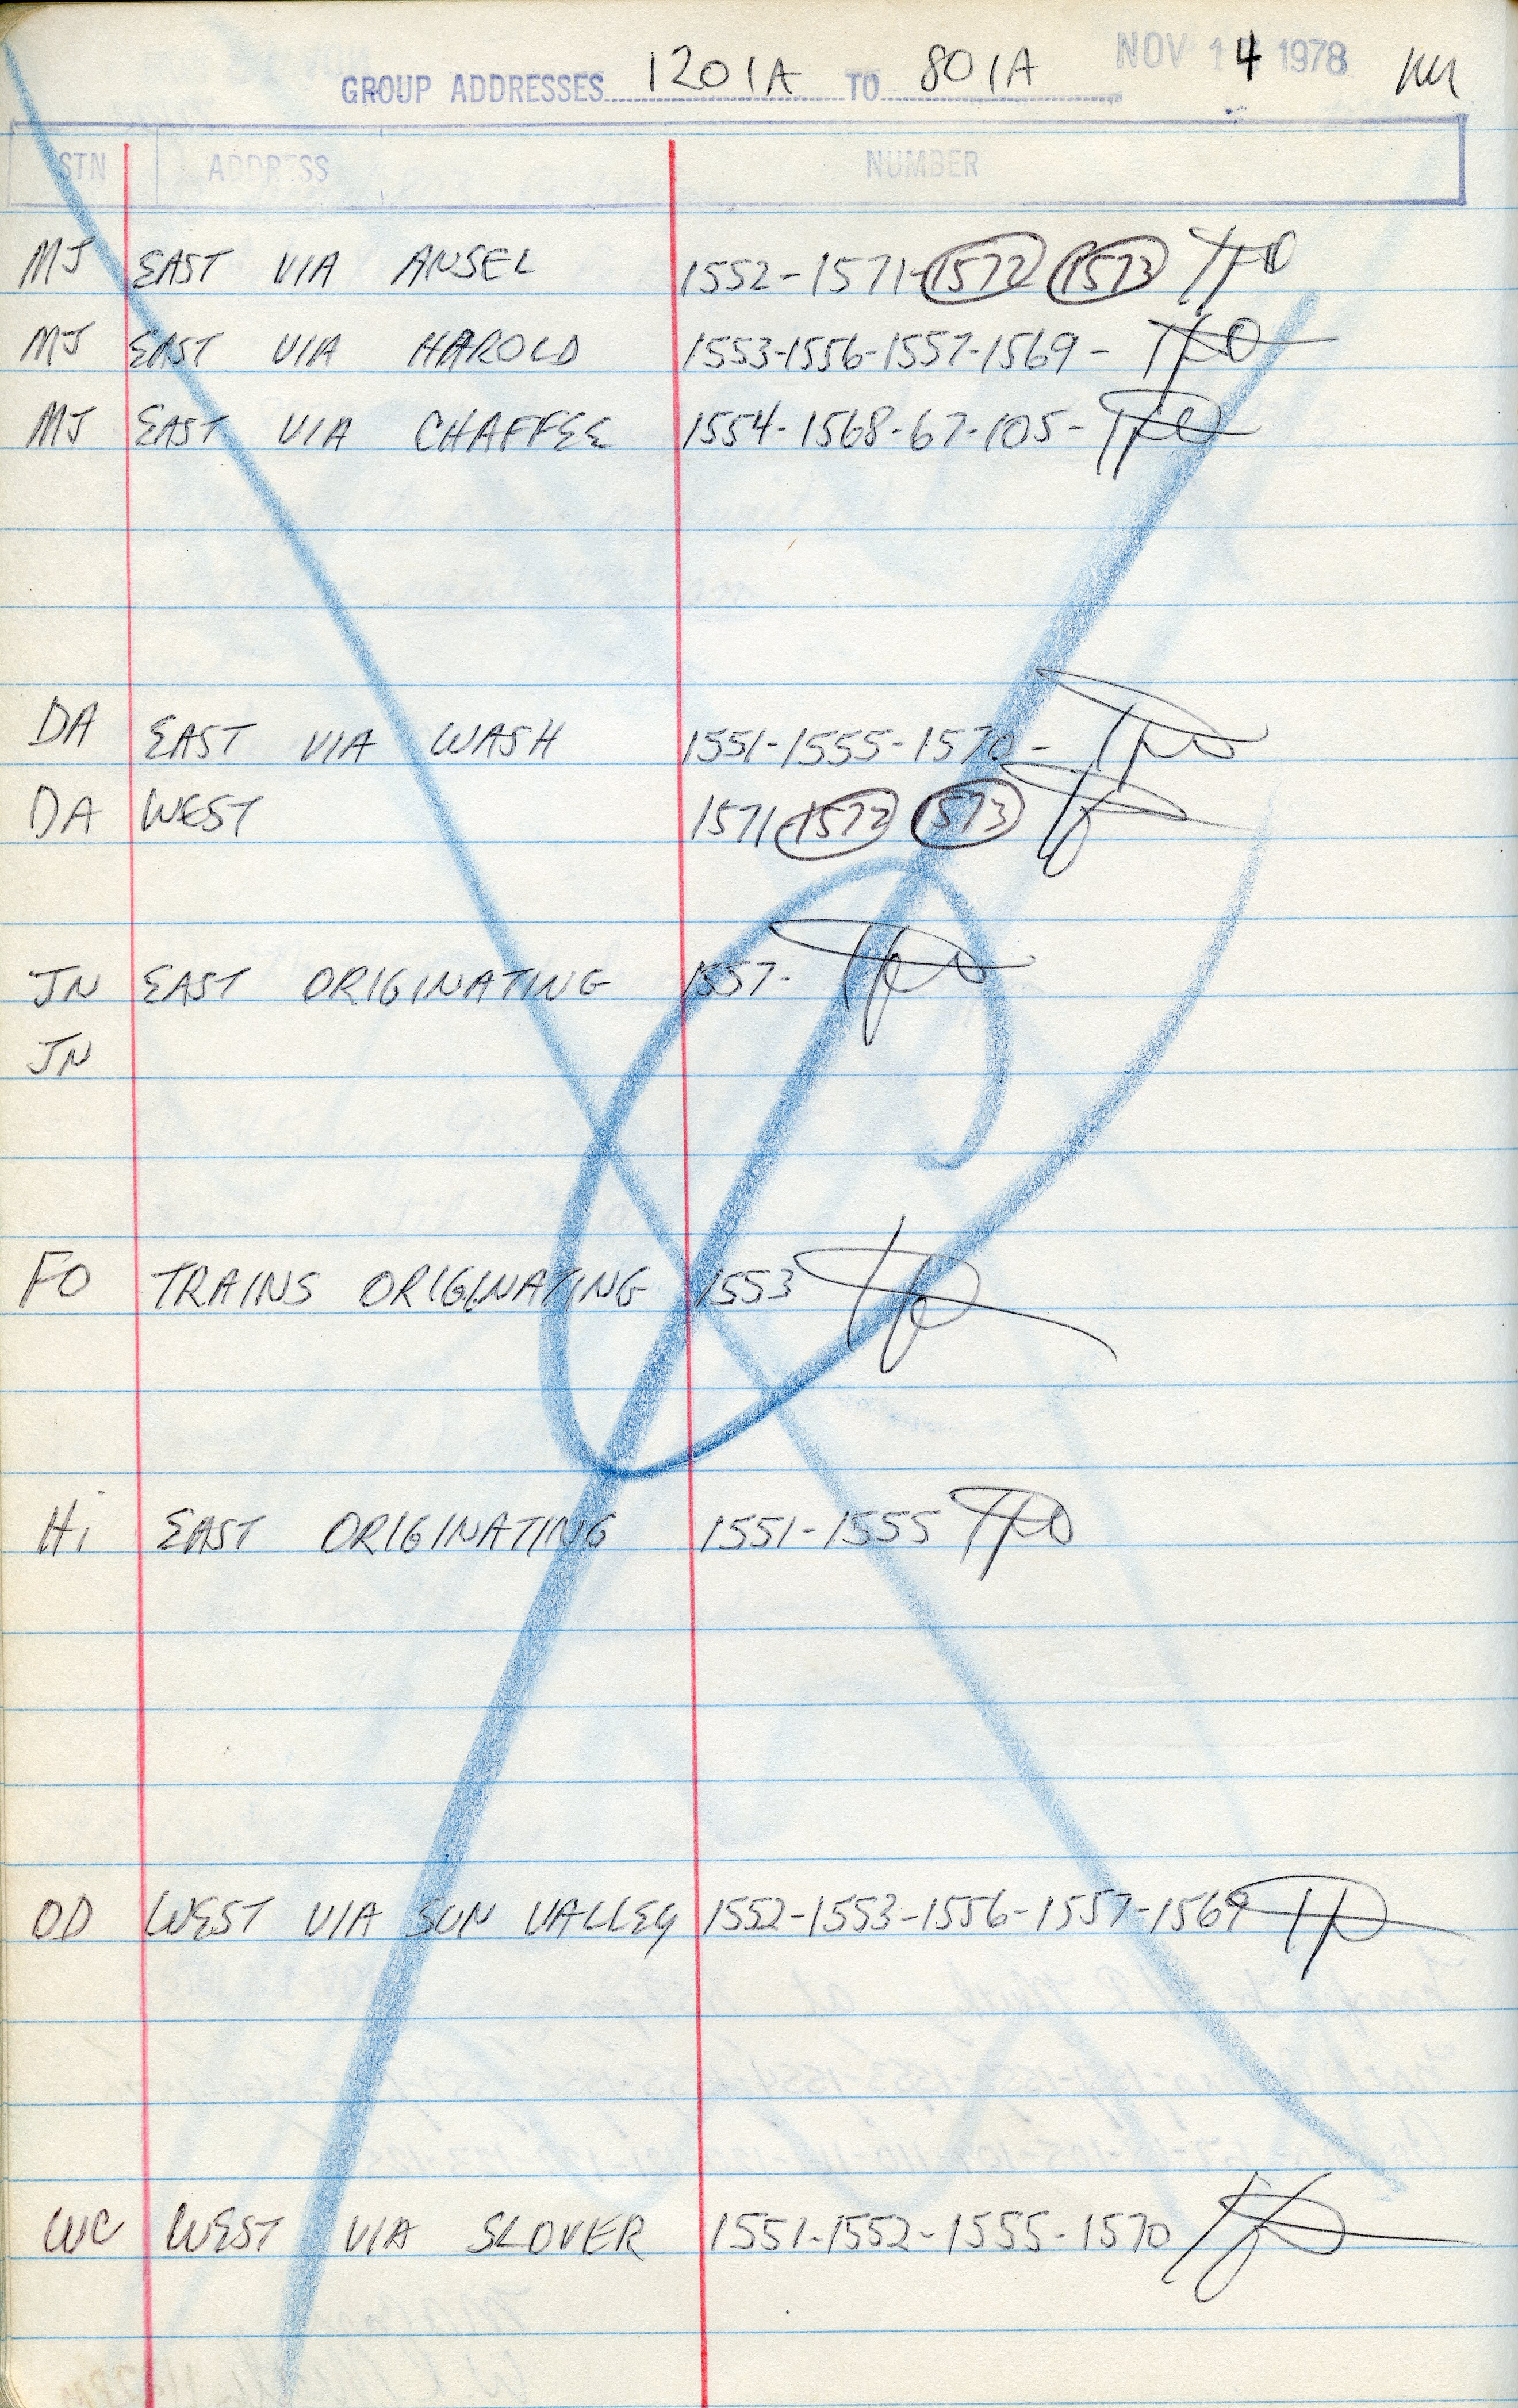 GROUP ADDRESSES 1201A TO 801A NOV 14 1978
STN ADDRESS NUMBER
MJ EAST VIA ANSEL 1552-1571-1572 1573
MJ EAST VIA HAROLD 1553-1556-1557-1569-
MJ EAST VIA CHAFFEE 1554-1568-67-105-
DA EAST VIA WASH 1551-1555-1570-
DA WEST 1571-1572 1573
JN EAST ORIGINATING 1557-
JN
FO TRAINS ORIGINATING 1553
Hi EAST ORIGINATING 1551-1555
OD WEST VIA SUN VALLEY 1552-1553-1556-1557-1569
WC WEST VIA SLOVER 1551-1552-1555-1570